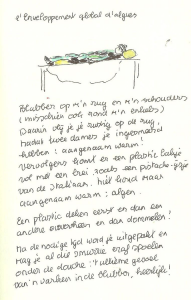 l'Enveloppement global d'algues
Blubber op m'n rug en m'n schouders
(misschien ook rond m'n enkels)
Daarin vlij je je rustig op de rug,
nadat twee dames je ingesmeerd
hebben: aangenaam warm!
Vervolgens komt er een plastic lakje
vol met een brei zoals een pistache-ijsje
van de Italiaan, mét
aangenaam warm: algen.
Een plastic deken eerst en dan een
andere eroverheen en dan dommelen!
Na de nodige tijd word je uitgepakt en
mag je al die smurrie eraf spoelen
onder de douche: 't ultieme gevoel
van 'n varken in de blubber, heerlijk!